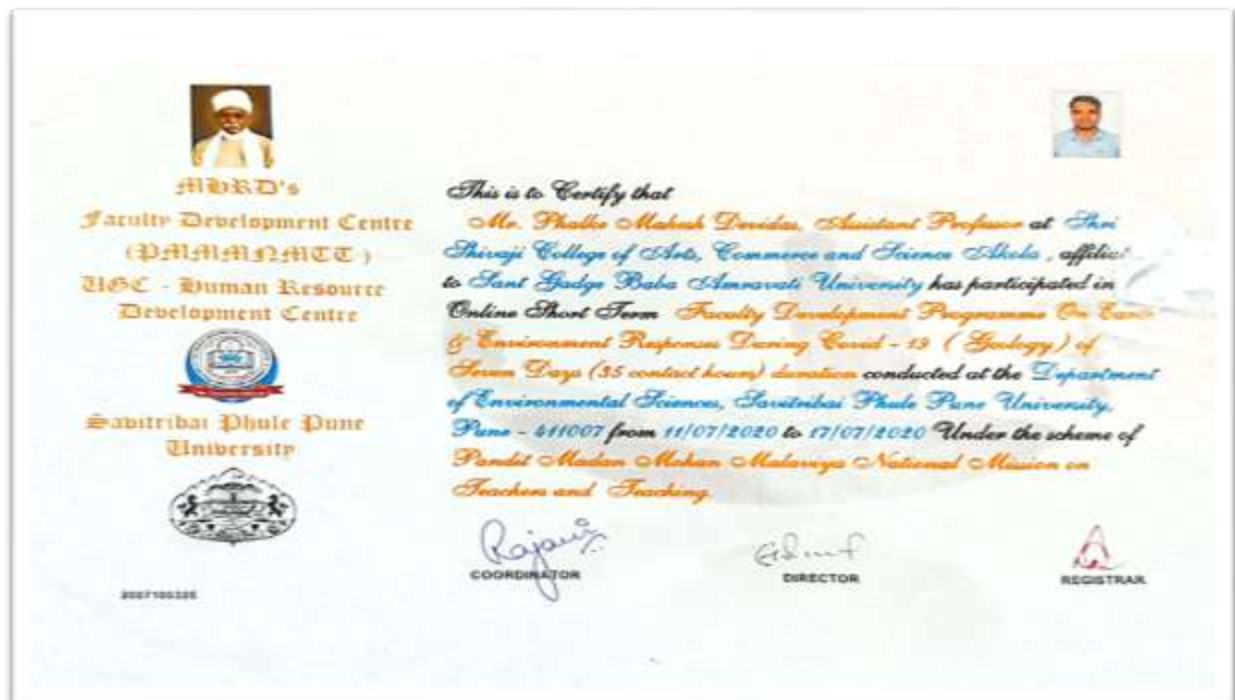 MHRD's
Faculty Development Centre
(PMMMNMTT)
UGC - Human Resource
Development Centre
Savitribai Phule Pune
University
This is to Certify that
Mr. Phalke Mahesh Devidas, Assistant Professor at Shri
Shivaji College of Arts, Commerce and Science Akola, affiliat
to Sant Gadge Baba Amravati University has participated in
Online Short Term Faculty Development Programme On Eart
& Environment Responses During Covid - 19 ( Geology) of
Seven Days (35 contact hours) duration conducted at the Department
of Environmental Sciences, Savitribai Phule Pune University,
Pune - 411007 from 11/07/2020 to 17/07/2020 Under the scheme of
Pandit Madan Mohan Malaveya National Mission on
Teachers and Teaching.
Rajani
COORDINATOR
DIRECTOR
REGISTRAR